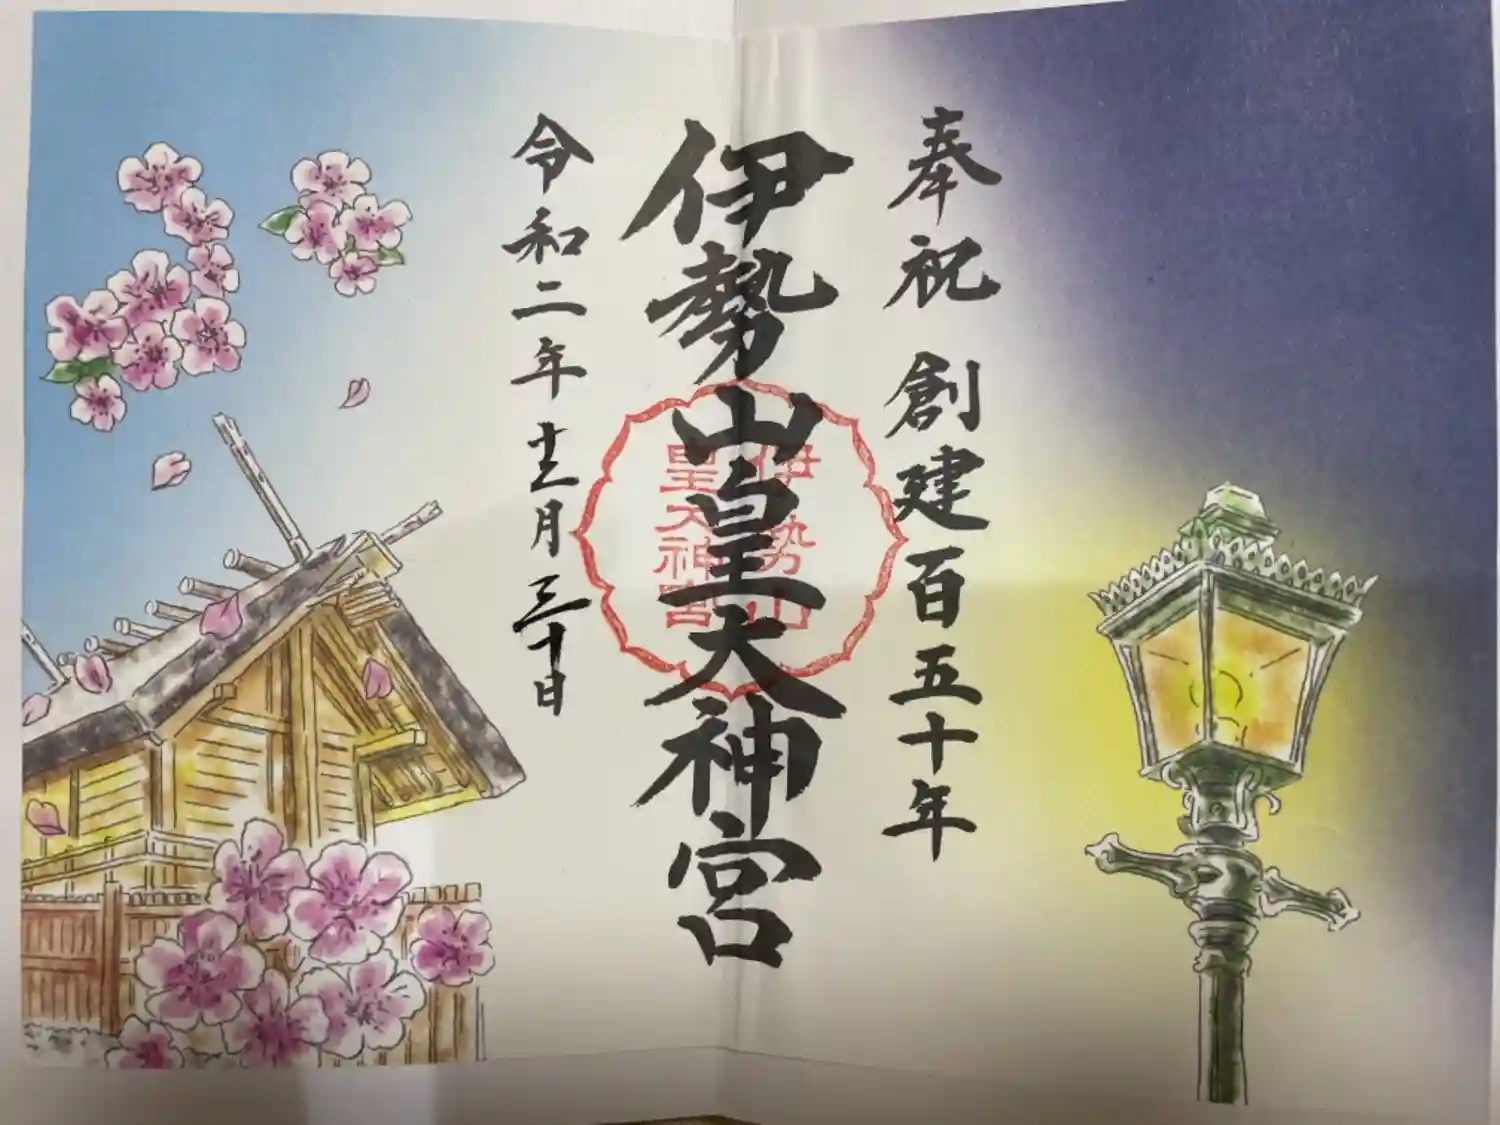 奉祝 創建百五十年
伊勢山皇大神宮
伊勢山
皇大神宮
令和二年十二月三十日